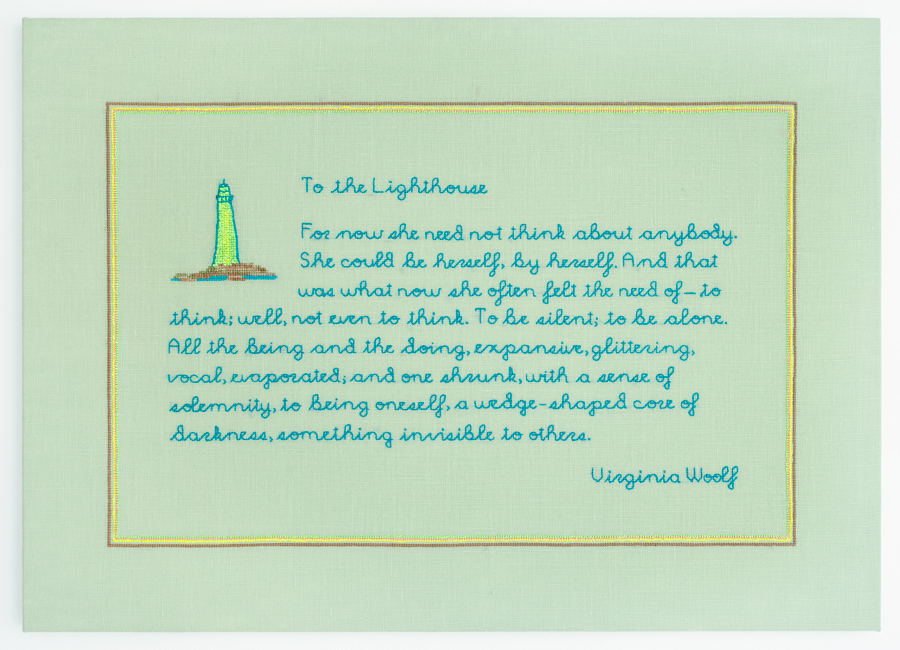 To the Lighthouse
For now she need not think about anybody.
She could be herself, by herself. And that
was what now she often felt the need of – to
think; well, not even to think. To be silent; to be alone.
All the being and the doing, expansive, glittering,
vocal, evaporated; and one shrunk, with a sense of
solemnity, to being oneself, a wedge-shaped core of
darkness, something invisible to others.
Virginia Woolf